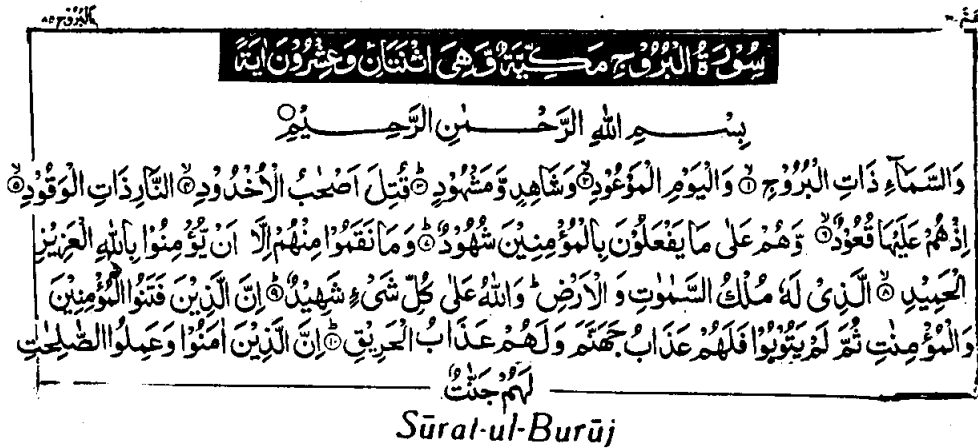 البروج ٨٥
عم ٣٠
سُوْرَةُ الْبُرُوْجِ مَكِّيَّةٌ وَّهِىَ اثْنَتَانِ وَعِشْرُوْنَ اٰيَةً
بِسْمِ اللهِ الرَّحْمٰنِ الرَّحِيْمِ
وَالسَّمَآءِ ذَاتِ الْبُرُوْجِ ۝١ وَالْيَوْمِ الْمَوْعُوْدِ ۝٢ وَشَاهِدٍ وَّمَشْهُوْدٍ ۝٣ قُتِلَ اَصْحٰبُ الْاُخْدُوْدِ ۝٤ النَّارِ ذَاتِ الْوَقُوْدِ ۝٥
اِذْ هُمْ عَلَيْهَا قُعُوْدٌ ۝٦ وَّهُمْ عَلٰى مَا يَفْعَلُوْنَ بِالْمُؤْمِنِيْنَ شُهُوْدٌ ۝٧ وَمَا نَقَمُوْا مِنْهُمْ اِلَّا اَنْ يُّؤْمِنُوْا بِاللهِ الْعَزِيْزِ
الْحَمِيْدِ ۝٨ الَّذِىْ لَهٗ مُلْكُ السَّمٰوٰتِ وَ الْاَرْضِ ؕ وَاللهُ عَلٰى كُلِّ شَىْءٍ شَهِيْدٌ ۝٩ اِنَّ الَّذِيْنَ فَتَنُوا الْمُؤْمِنِيْنَ
وَالْمُؤْمِنٰتِ ثُمَّ لَمْ يَتُوْبُوْا فَلَهُمْ عَذَابُ جَهَنَّمَ وَلَهُمْ عَذَابُ الْحَرِيْقِ ۝١٠ اِنَّ الَّذِيْنَ اٰمَنُوْا وَعَمِلُوا الصّٰلِحٰتِ
لَهُمْ جَنّٰتٌ
Sūrat-ul-Burūj